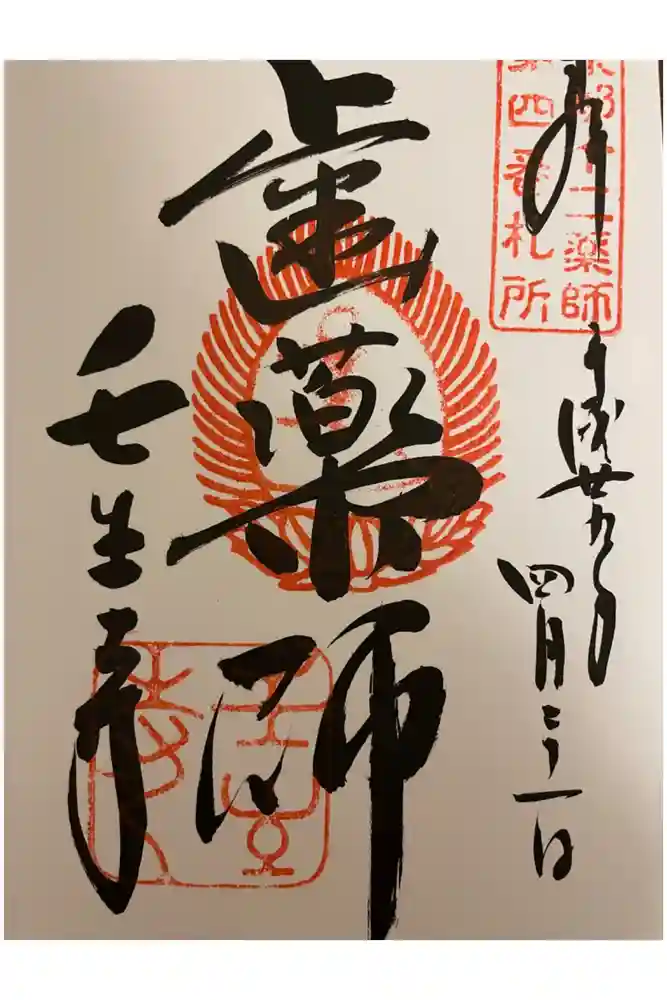 京都十二薬師
第四番札所
拝
平成廿九年
四月二十一日
歯薬師
壬生寺